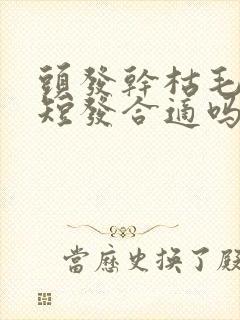 頭發幹枯毛
短發合適嗎
當歷史換了殿